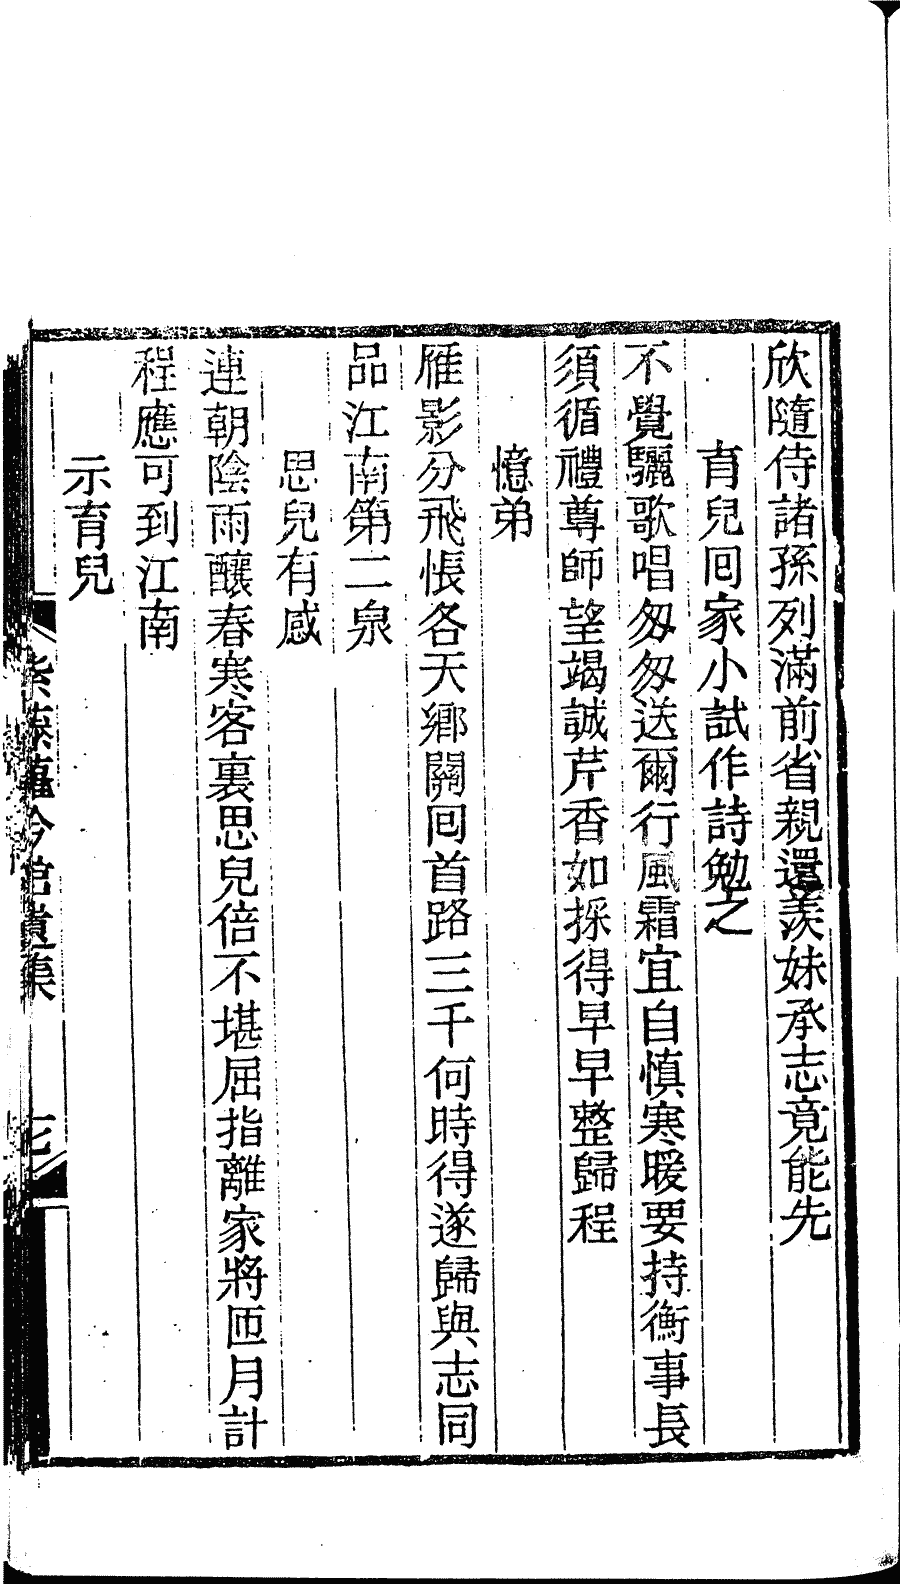 欣隨侍諸孫列滿前省親還羨妹承志竟能先
育兒囘家小試作詩勉之
不覺驪歌唱匆匆送爾行風霜宜自慎寒暖要持衡事長
須循禮尊師望竭誠芹香如採得早早整歸程
憶弟
雁影分飛悵各天鄉關囘首路三千何時得遂歸與志同
品江南第二泉
思兒有感
連朝陰雨釀春寒客裏思兒倍不堪屈指離家將匝月計
程應可到江南
示育兒
紫藤蘿吟館遺集
七